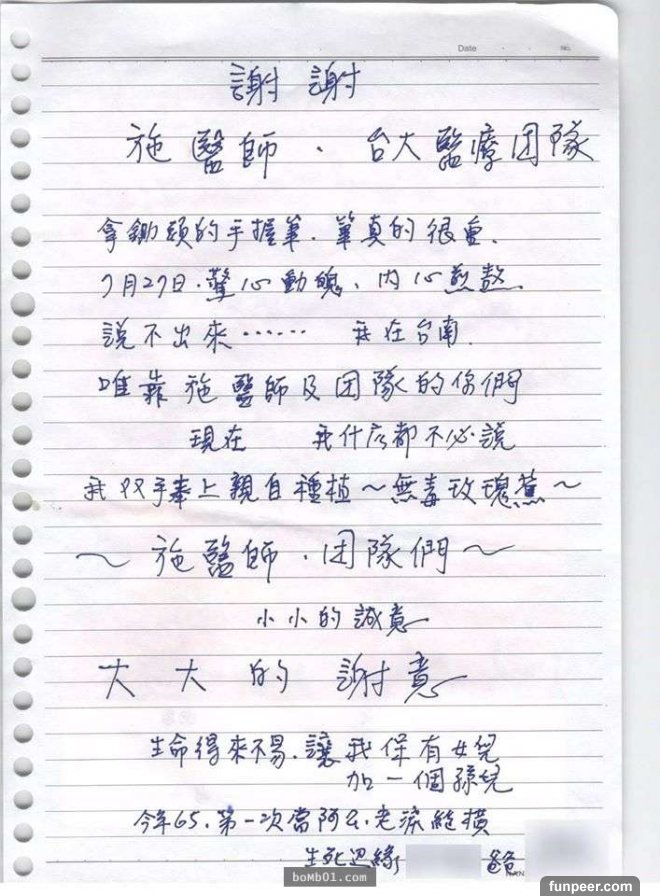 Date
No.
謝謝
施醫師．台大醫療团隊
拿鋤頭的手握筆．筆真的很重．
7月27日．驚心動魄、內心煎熬．
說不出來…… 我在台南．
唯靠施醫師及团隊的你們
現在 我什広都不必說
我双手奉上親自種植～無毒玫瑰蕉～
～施醫師．团隊們～
小小的誠意
大大的謝意
生命得來不易．讓我保有女兒
加一個孫兒
今年65．第一次當阿公．老淚縱橫
生死边緣
爸
boMb01.com
funpeer.com